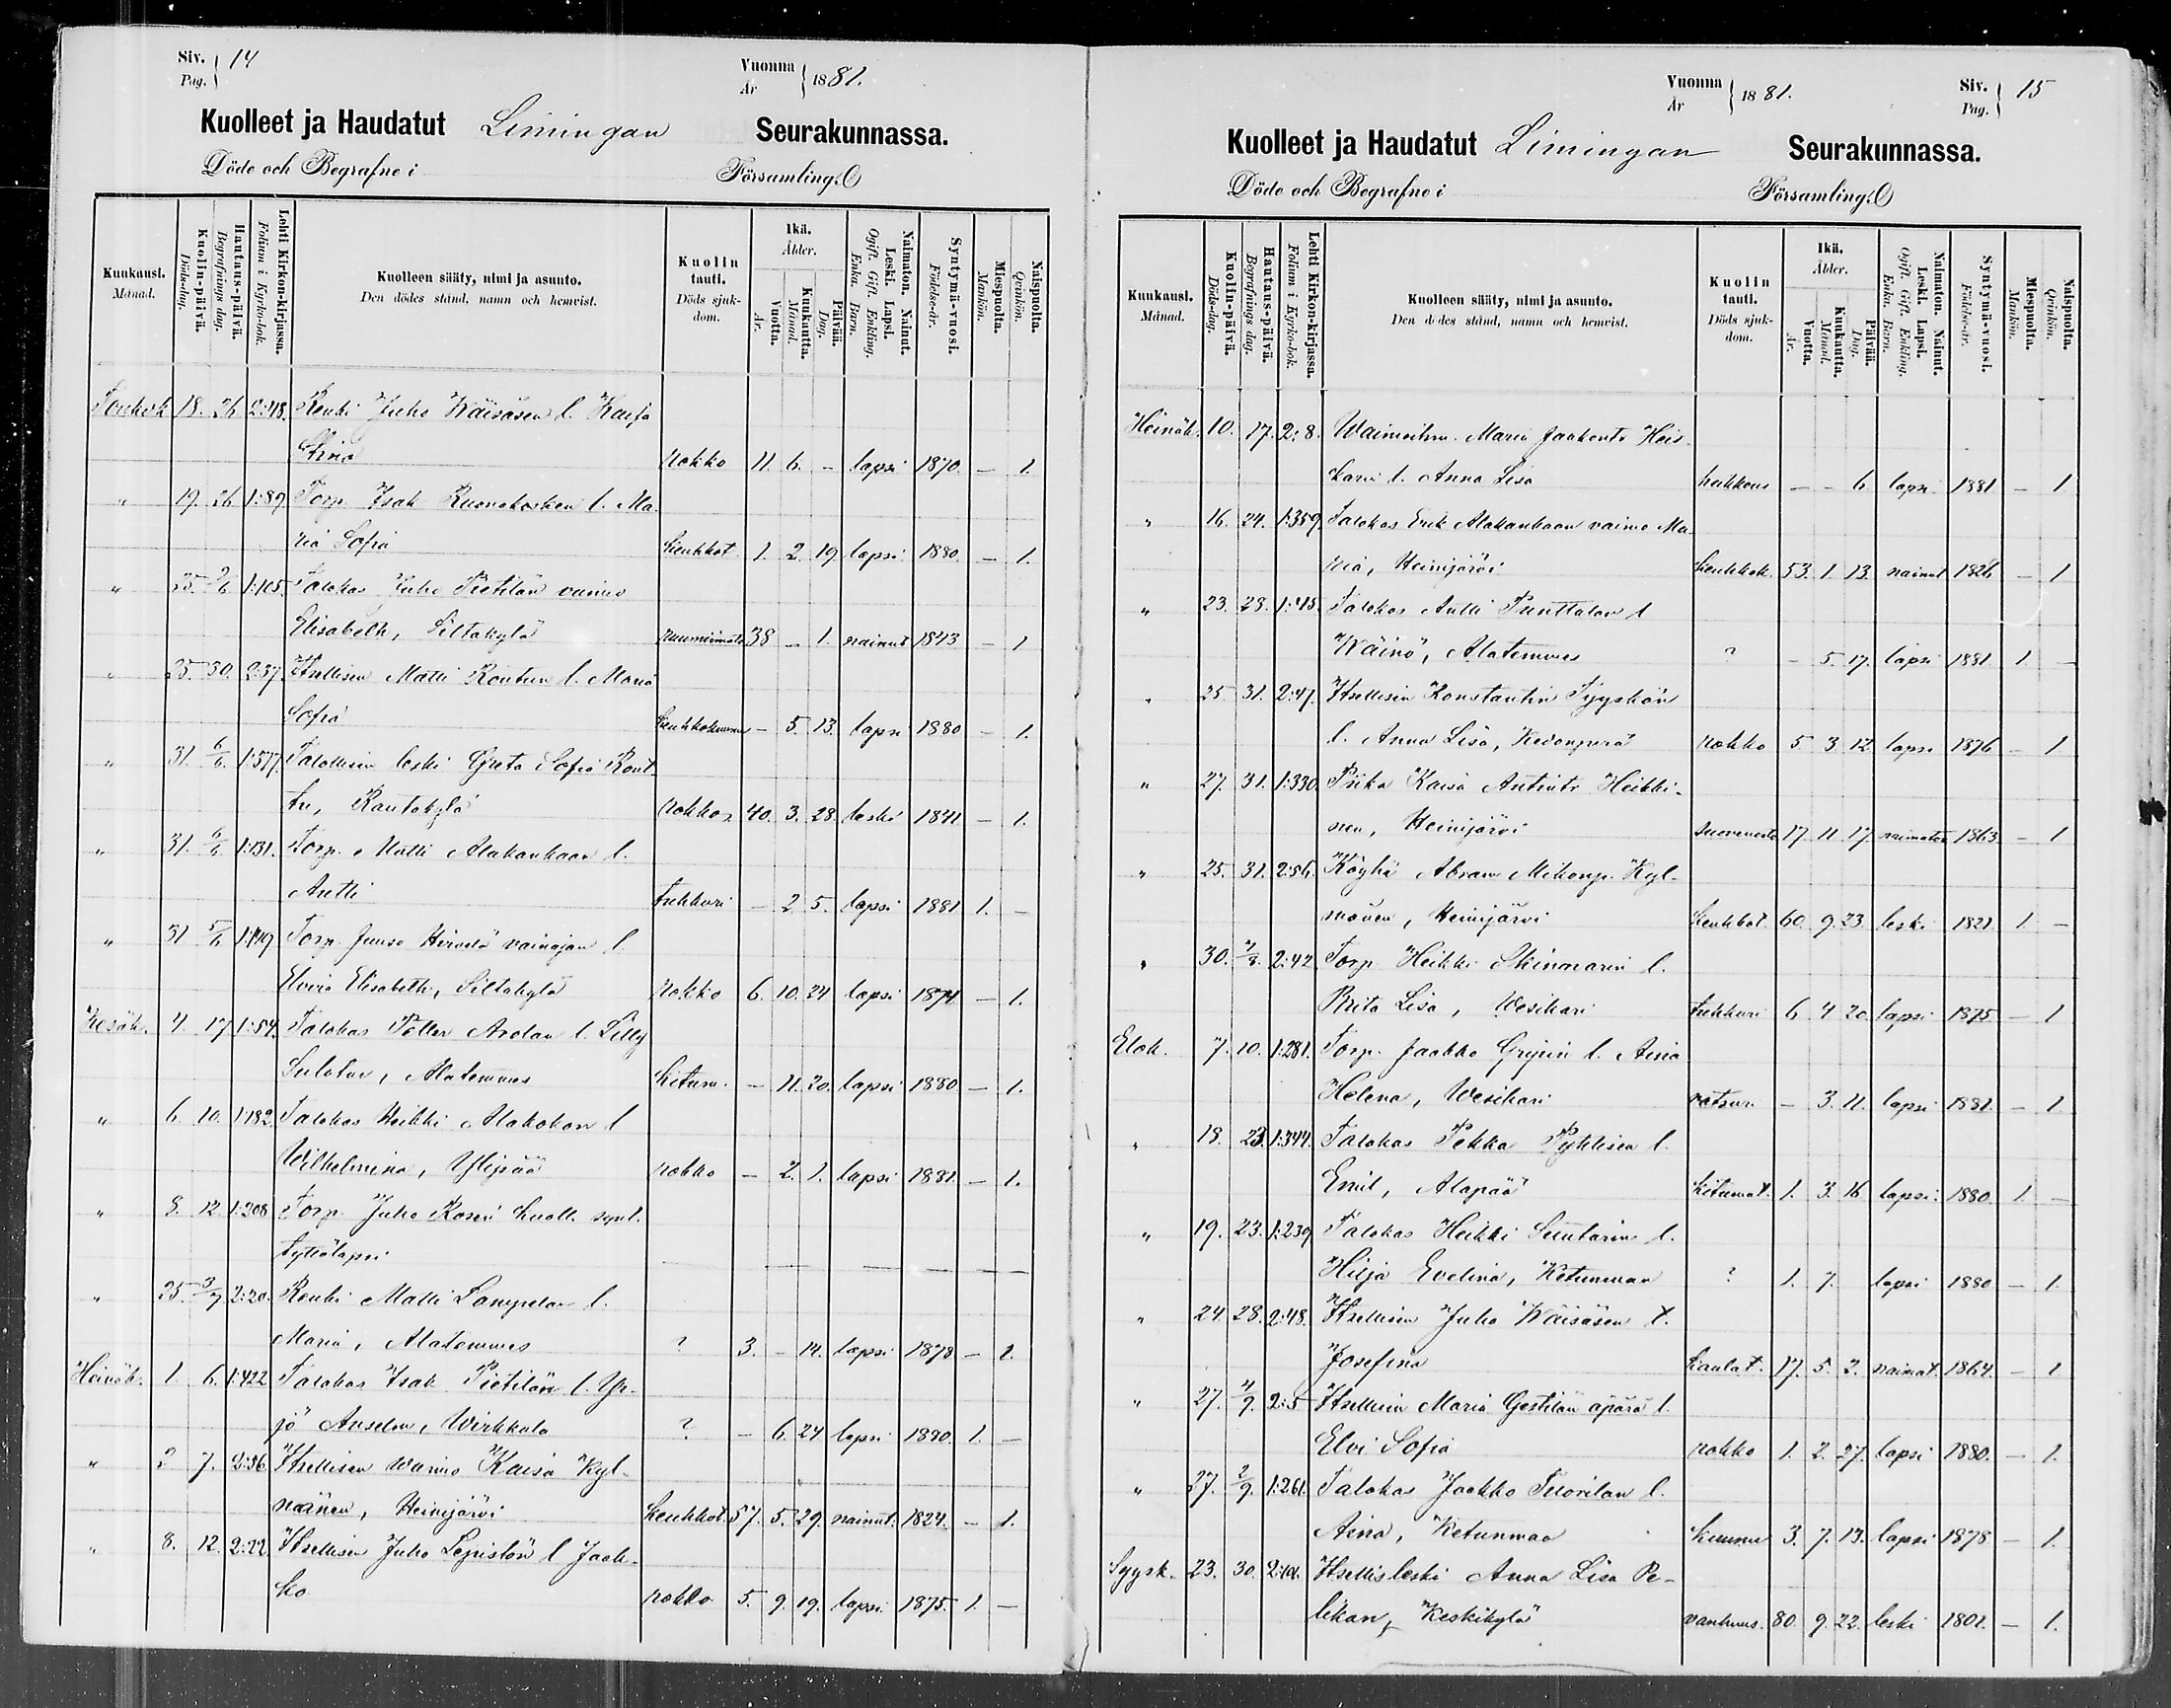 Siv. Pag. } 14
Vuonna År } 1881.
Kuolleet ja Haudatut Limingan Seurakunnassa.
Döde och Begrafne i Församling.
Kuukausi. Månad. Kuolin-päivä. Döds-dag. Hautaus-päivä. Begrafnings dag. Lehti Kirkon-kirjassa. Folium i Kyrko-bok. Kuolleen sääty, nimi ja asunto. Den dödes stånd, namn och hemvist. Kuolin tauti. Döds sjukdom. Ikä. Ålder. Vuotta. År. Kuukautta. Månad. Päivää. Dag. Naimaton. Nainut. Leski. Lapsi. Ogift. Gift. Enkling. Enka. Barn. Syntymä-vuosi. Födelse-år. Miespuolta. Mankön. Naispuolta. Qvinkön.
Toukok. 18. 26 2:48. Renki Juho Wäisäsen l. Kaisa
Stina rokko 11. 6. – lapsi 1870. – 1.
" 19. 26 1:89. Torp. Isak Ruonakosken l. Ma
ria Sofia keuhkot. 1. 2. 19. lapsi 1880. – 1.
" 25. 1:105. Talokas Juho Pietilän vaimo
Elisabeth, Siltakylä 38 – 1. nainut 1843 – 1
" 25. 30. 2:37. Itsellisen Matti Routun l. Maria
Sofia – 5. 13. lapsi 1880 – 1.
" 31. 6/6. 1:577. Talollisen leski Greta Sofia Rout
tu, Rantakylä rokko 40. 3. 28. leski 1841 – 1.
" 31. 6/6 1:131. Torp. Matti Alakankaan l.
Antti tukkuri – 2 5. lapsi 1881 1. –
" 31 5/6 1:149 Torp. Juuso Hirvelä vainajan l.
Elvira Elisabeth, Siltakylä rokko 6. 10. 24 lapsi 1874 – 1.
Kesäk. 4. 17 1:54. Talokas Petter Arolan l. Lilly
Sulotar, Alatemmes kitum. – 11. 20. lapsi 1880 – 1.
" 6. 10. 1:182 Talokas Heikki Alakokon l
Wilhelmina, Ylipää rokko – 2. 1. lapsi 1881. – 1.
" 8. 12 1:208 Torp. Juho Rosen kuoll. synt.
tyttölapsi
" 25. 3/7 2:20. Renki Matti Lampelan l.
Maria, Alatemmes ? 3. – 14. lapsi 1878 – 1.
Heinäk. 1. 6. 1:422 Talokas Isak Pietilän l. Yr-
jö Anselm, Wirkkala ? – 6. 24 lapsi 1880. 1. –
" 2 7. 2:56 Itsellisen vaimo Kaisa Kyl-
mänen, Heinijärvi keuhkot. 57. 5. 29. nainut. 1824. – 1.
" 8. 12. 2:22. Itsellisen Juho Lepistön l Jaak-
ko rokko 5. 9. 19. lapsi 1875. 1. –
Vuonna År } 1881.
Siv. Pag. } 15
Kuolleet ja Haudatut Limingan Seurakunnassa.
Döde och Begrafne i Församling.
Kuukausi. Månad. Kuolin-päivä. Döds-dag. Hautaus-päivä. Begrafnings dag. Lehti Kirkon-kirjassa. Folium i Kyrko-bok. Kuolleen sääty, nimi ja asunto. Den dödes stånd, namn och hemvist. Kuolin tauti. Döds sjukdom. Ikä. Ålder. Vuotta. År. Kuukautta. Månad. Päivää. Dag. Naimaton. Nainut. Leski. Lapsi. Ogift. Gift. Enkling. Enka. Barn. Syntymä-vuosi. Födelse-år. Miespuolta. Mankön. Naispuolta. Qvinkön.
Heinäk. 10. 17. 2:8. Maria Jaakontr Heis
kari l. Anna Lisa – – 6 lapsi 1881 – 1
" 16. 24. 1:359. Talokas Erik Alakankaan vaimo Ma
ria, Heinijärvi keuhkok. 53. 1. 13. nainut 1828 – 1
" 23. 29. 1:45. Talokas Antti Punttalan l
Wäinö, Alatemmes ? – 5 17. lapsi 1881 1 –
" 25 31. 2:47. Itsellisen Konstantin Tyyskän
l. Anna Lisa, Kedonperä rokko 5 3 12 lapsi 1876 – 1
" 27. 31. 1:330. Piika Kaisa Antintr Heikki-
nen, Heinijärvi 17. 11. 17. naimaton 1863 – 1
" 25. 31. 2:56. Köyhä Abram Mikonp. Kyl-
mänen, Heinijärvi keuhkot. 60. 9. 23. leski 1821. 1. –
" 30. 2:42. Torp Heikki Skinnarin l.
Brita Lisa, Wesikari tukkuri 6 4 20. lapsi 1875 – 1
Elok. 7. 10. 1:281. Torp. Jaakko Grypin l. Aina
Helena, Wesikari – 3. 11. lapsi 1881. – 1
" 19. 23. 1:344. Talokas Pekka Pykkösen l.
Emil, Alapää kitumat. 1. 3. 16 lapsi. 1880. 1. –
" 19. 23. 1:239 Talokas Heikki Suutarin l.
Hilja Evelina, Ketunmaa ? 1. 7. lapsi 1880 – 1.
" 24. 28. 2:48. Itsellisen Juho Wäisäsen t.
Josefina kaulat. 17. 5. 2. naimat. 1864. – 1
" 27. 4/9. 2:5 Itsellisen Maria Gestilän äpärä l.
Elvi Sofia rokko 1. 2. 27. lapsi 1880. – 1.
" 27. 2/9. 1:261. Talokas Jaakko Tuorilan l.
Aina, Ketunmaa kuume 3. 7. 13. lapsi 1878 – 1.
Syysk. 23. 30. Itsellisleski Anna Lisa Pe-
likan, Keskikylä vanhuus. 80. 9. 22. leski 1801. – 1.